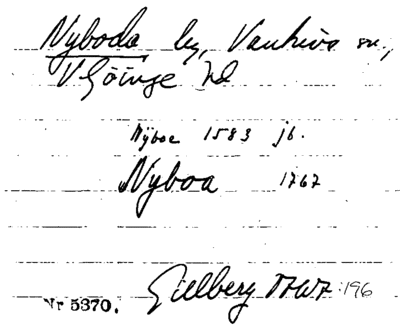 Nyboda by, Vankiva sn,
V Göinge hd
Nÿboe 1583 jb.
Nyboa 1767
Gillberg
:196
Nr 5370.